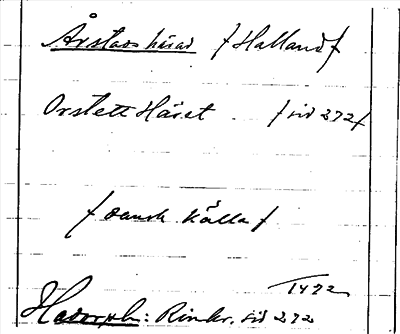 Årstads härad /Halland/
Orstett Häret /sid 272/
/dansk källa/
1422
Hadorph: Rimkr. sid 272